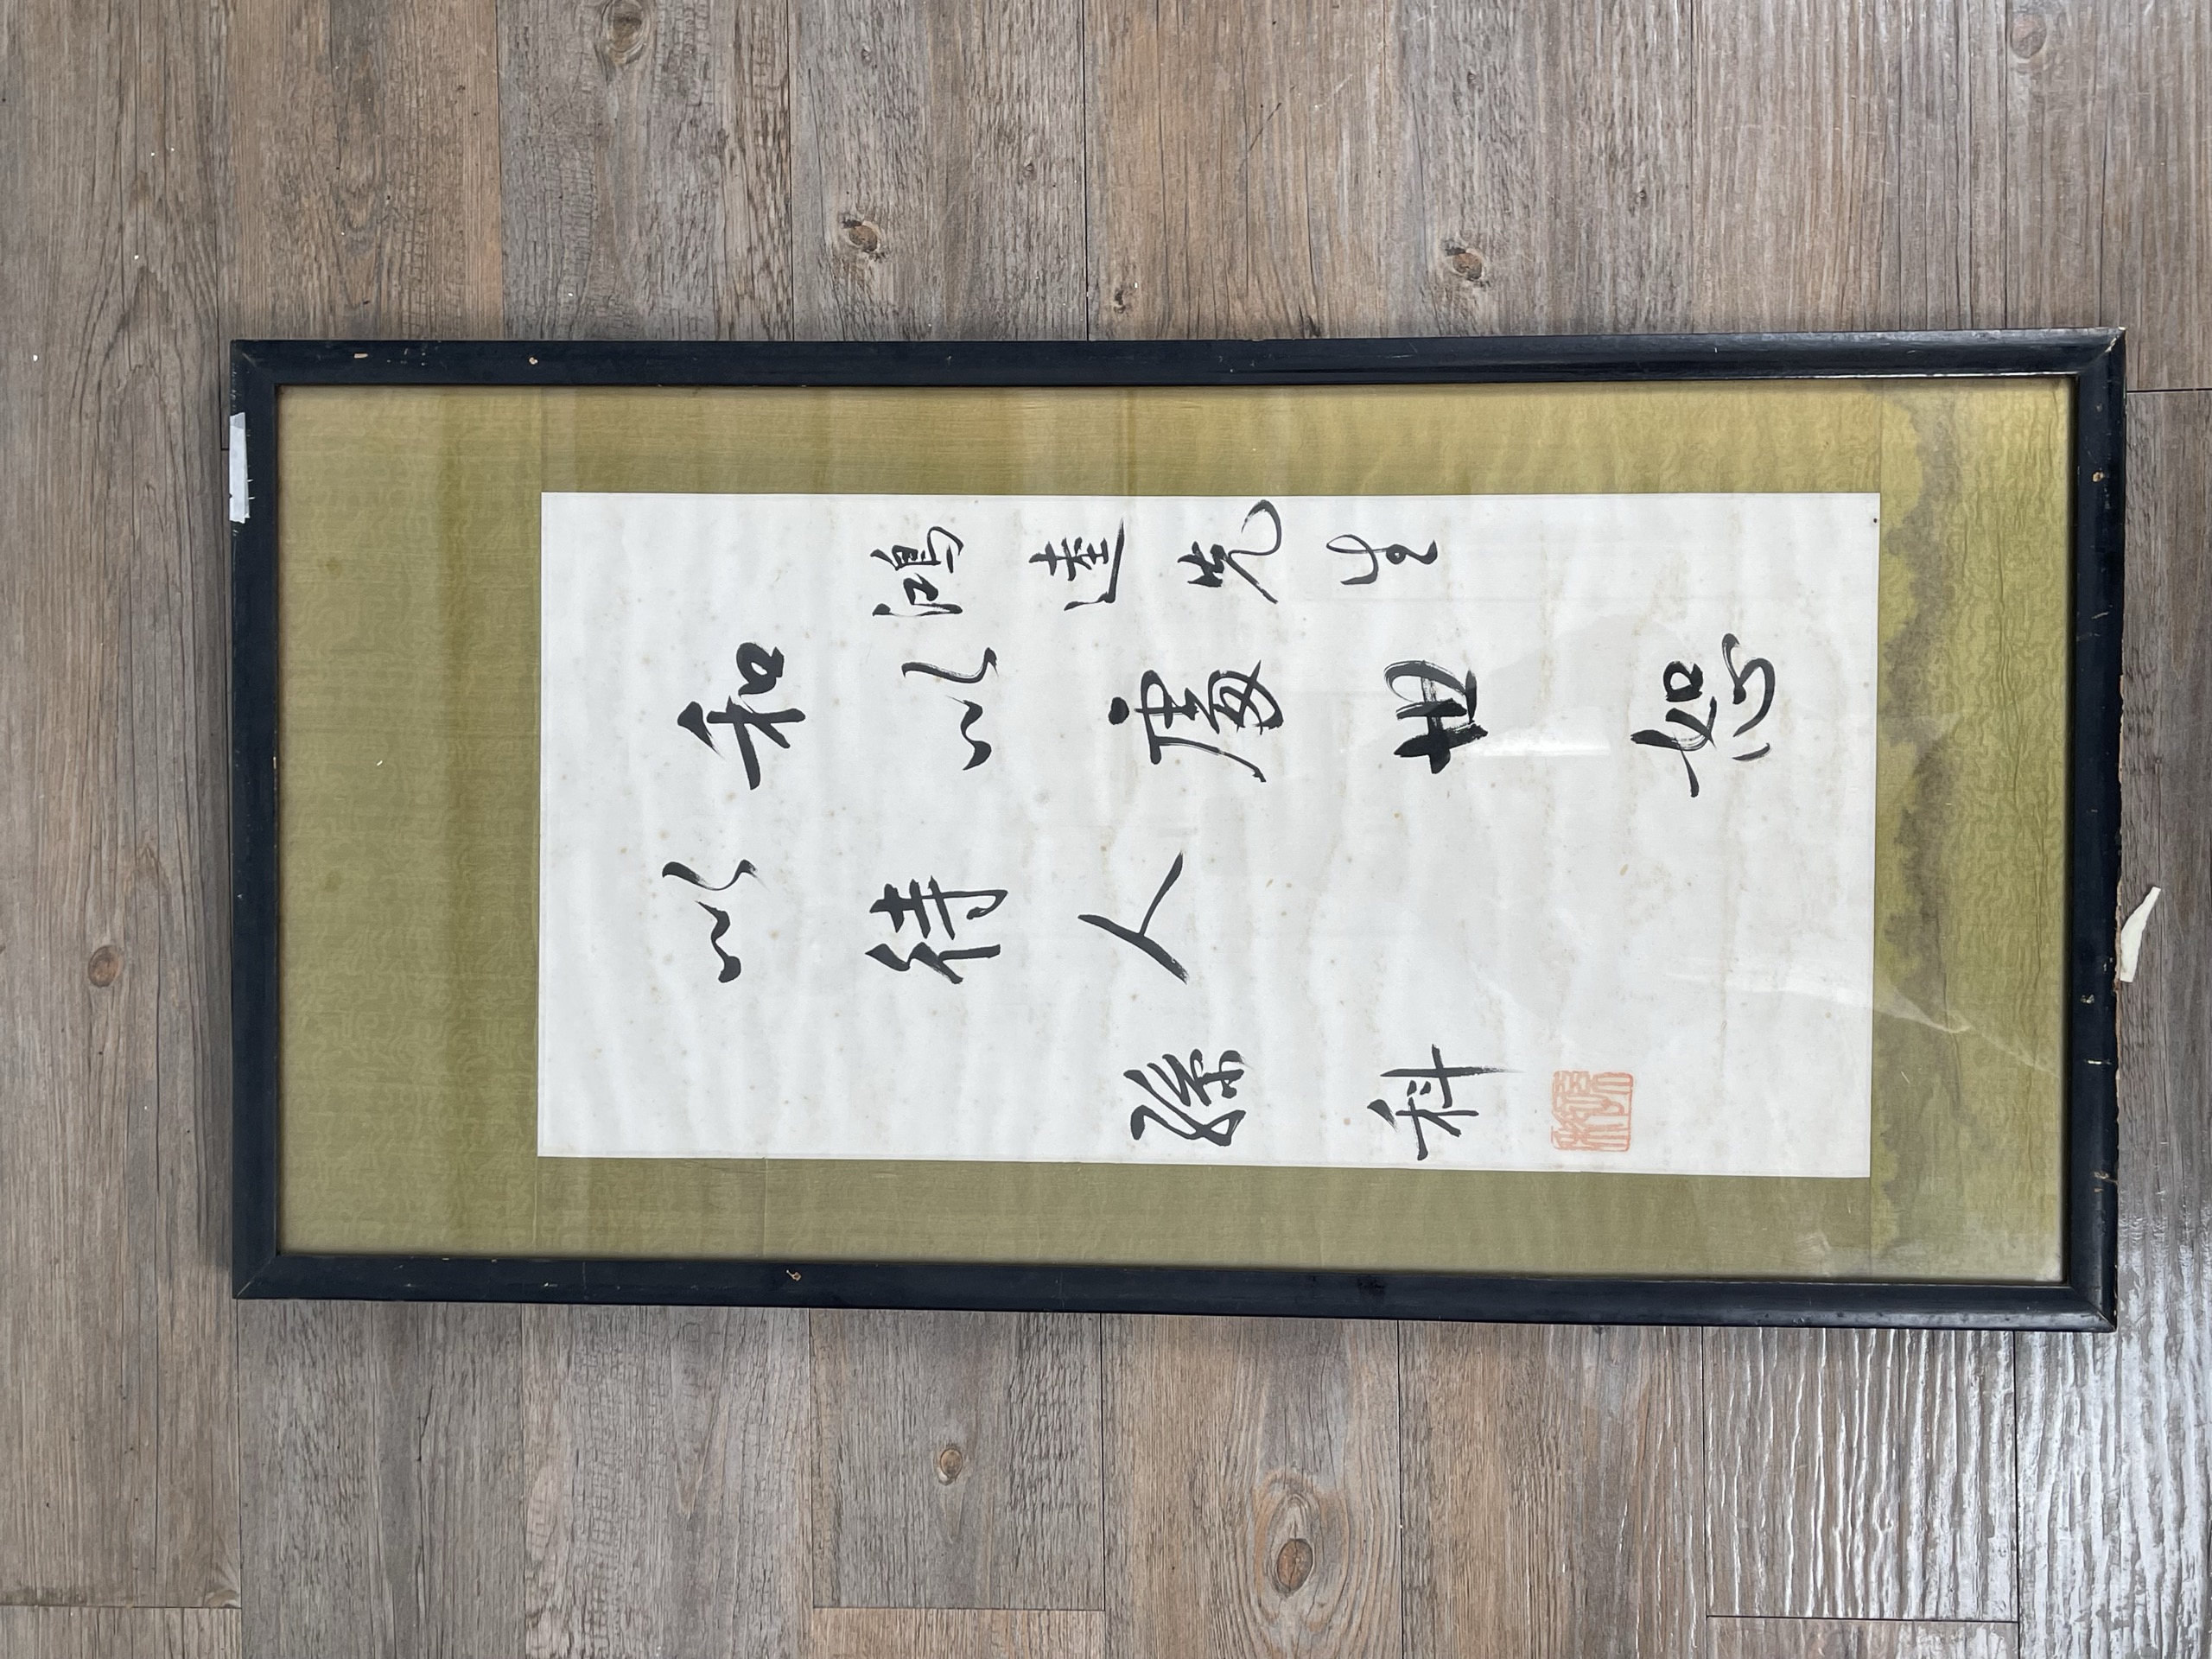 鴻達先生
和以處世恕
以待人
孫科